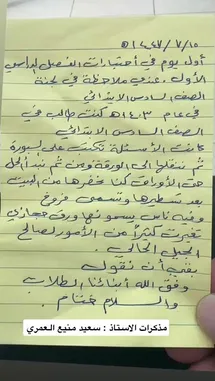 ١٤٤٧/٧/١٥هـ
أول يوم في اختبارات الفصل الدراسي
الأول. عندي ملاحظة في لجنة
الصف السادس الابتدائي
في عام ١٤٠٣هـ كنت طالب في
الصف السادس الابتدائي
كانت الأسئلة تكتب على السبورة
ثم ننقلها إلى الورقة ومن ثم نبدأ الحل
حتى الأوراق كنا نحضرها من البيت
بعد تسطيرها وتسمى فروخ
وفيه ناس يسمونها ورق حجازي
تغيرت كثيراً من الأمور لصالح
الجيل الحالي.
بقي أن نقول
وفق الله أبنائنا الطلاب
والسلام ختام.
مذكرات الاستاذ : سعيد منيع العمري